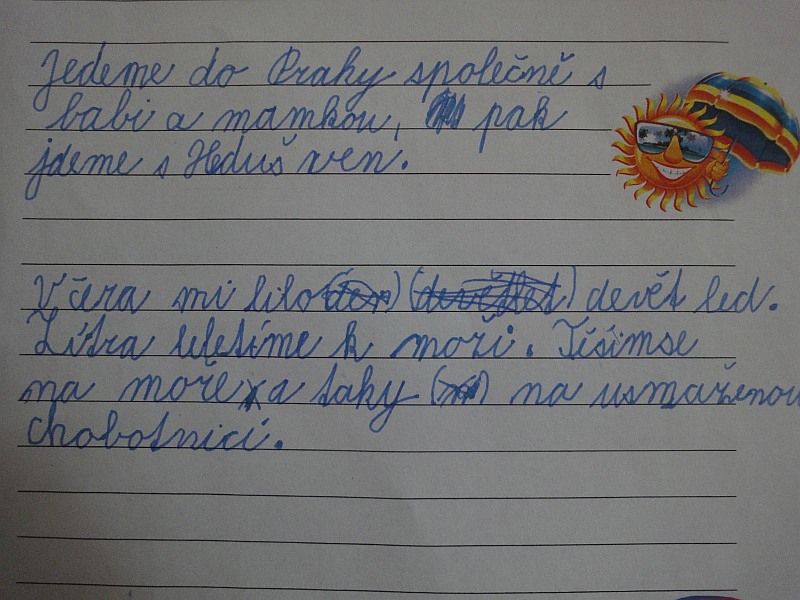 Jedeme do Prahy společně s
babi a mamkou, pak
jdeme s Heduš ven.
Včera mi bilo devět led.
Zítra leletíme k moři. Těšimse
na moře a taky na usmaženou
chobotnici.